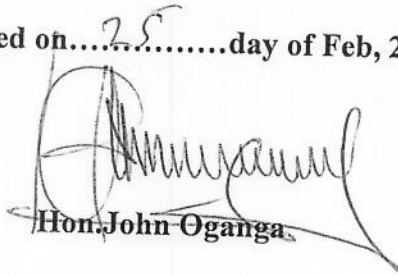 ed on....25...........day of Feb, 2
Hon.John Oganga